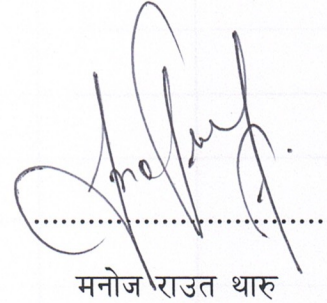 मनोज राउत थारु